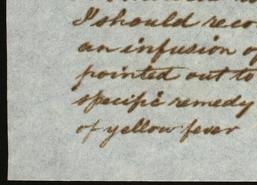 I should reco
an infusion of
pointed out to
specific remedy
of yellow fever